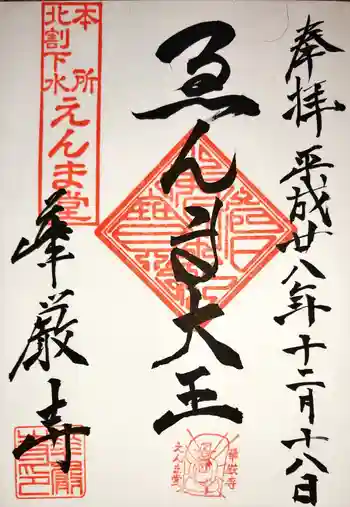 奉拝 平成廿八年十二月十八日
ゑんま大王
本所
北割下水
えんま堂
華厳寺
華厳寺
えんま堂